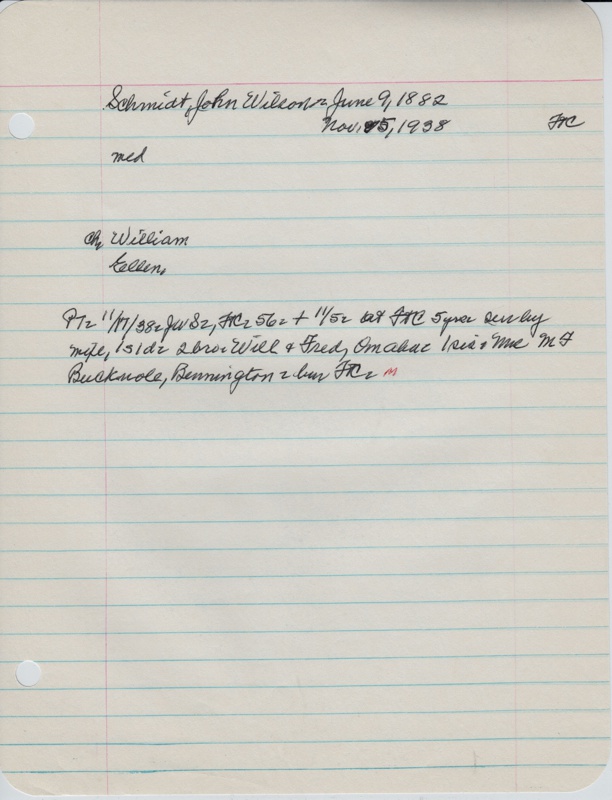 Schmidt, John Wilson, June 9, 1882
Nov. 5, 1938 FtC
med
Ch, William
Ellen,
11/17/38, JWS, FtC, 56, + 11/5, at FtC 5 yrs surv by
wife, 1s 1d, 2 bro, Will & Fred, Omaha 1 sis, Mrs M F
Bucknole, Bennington, bur FtC, M